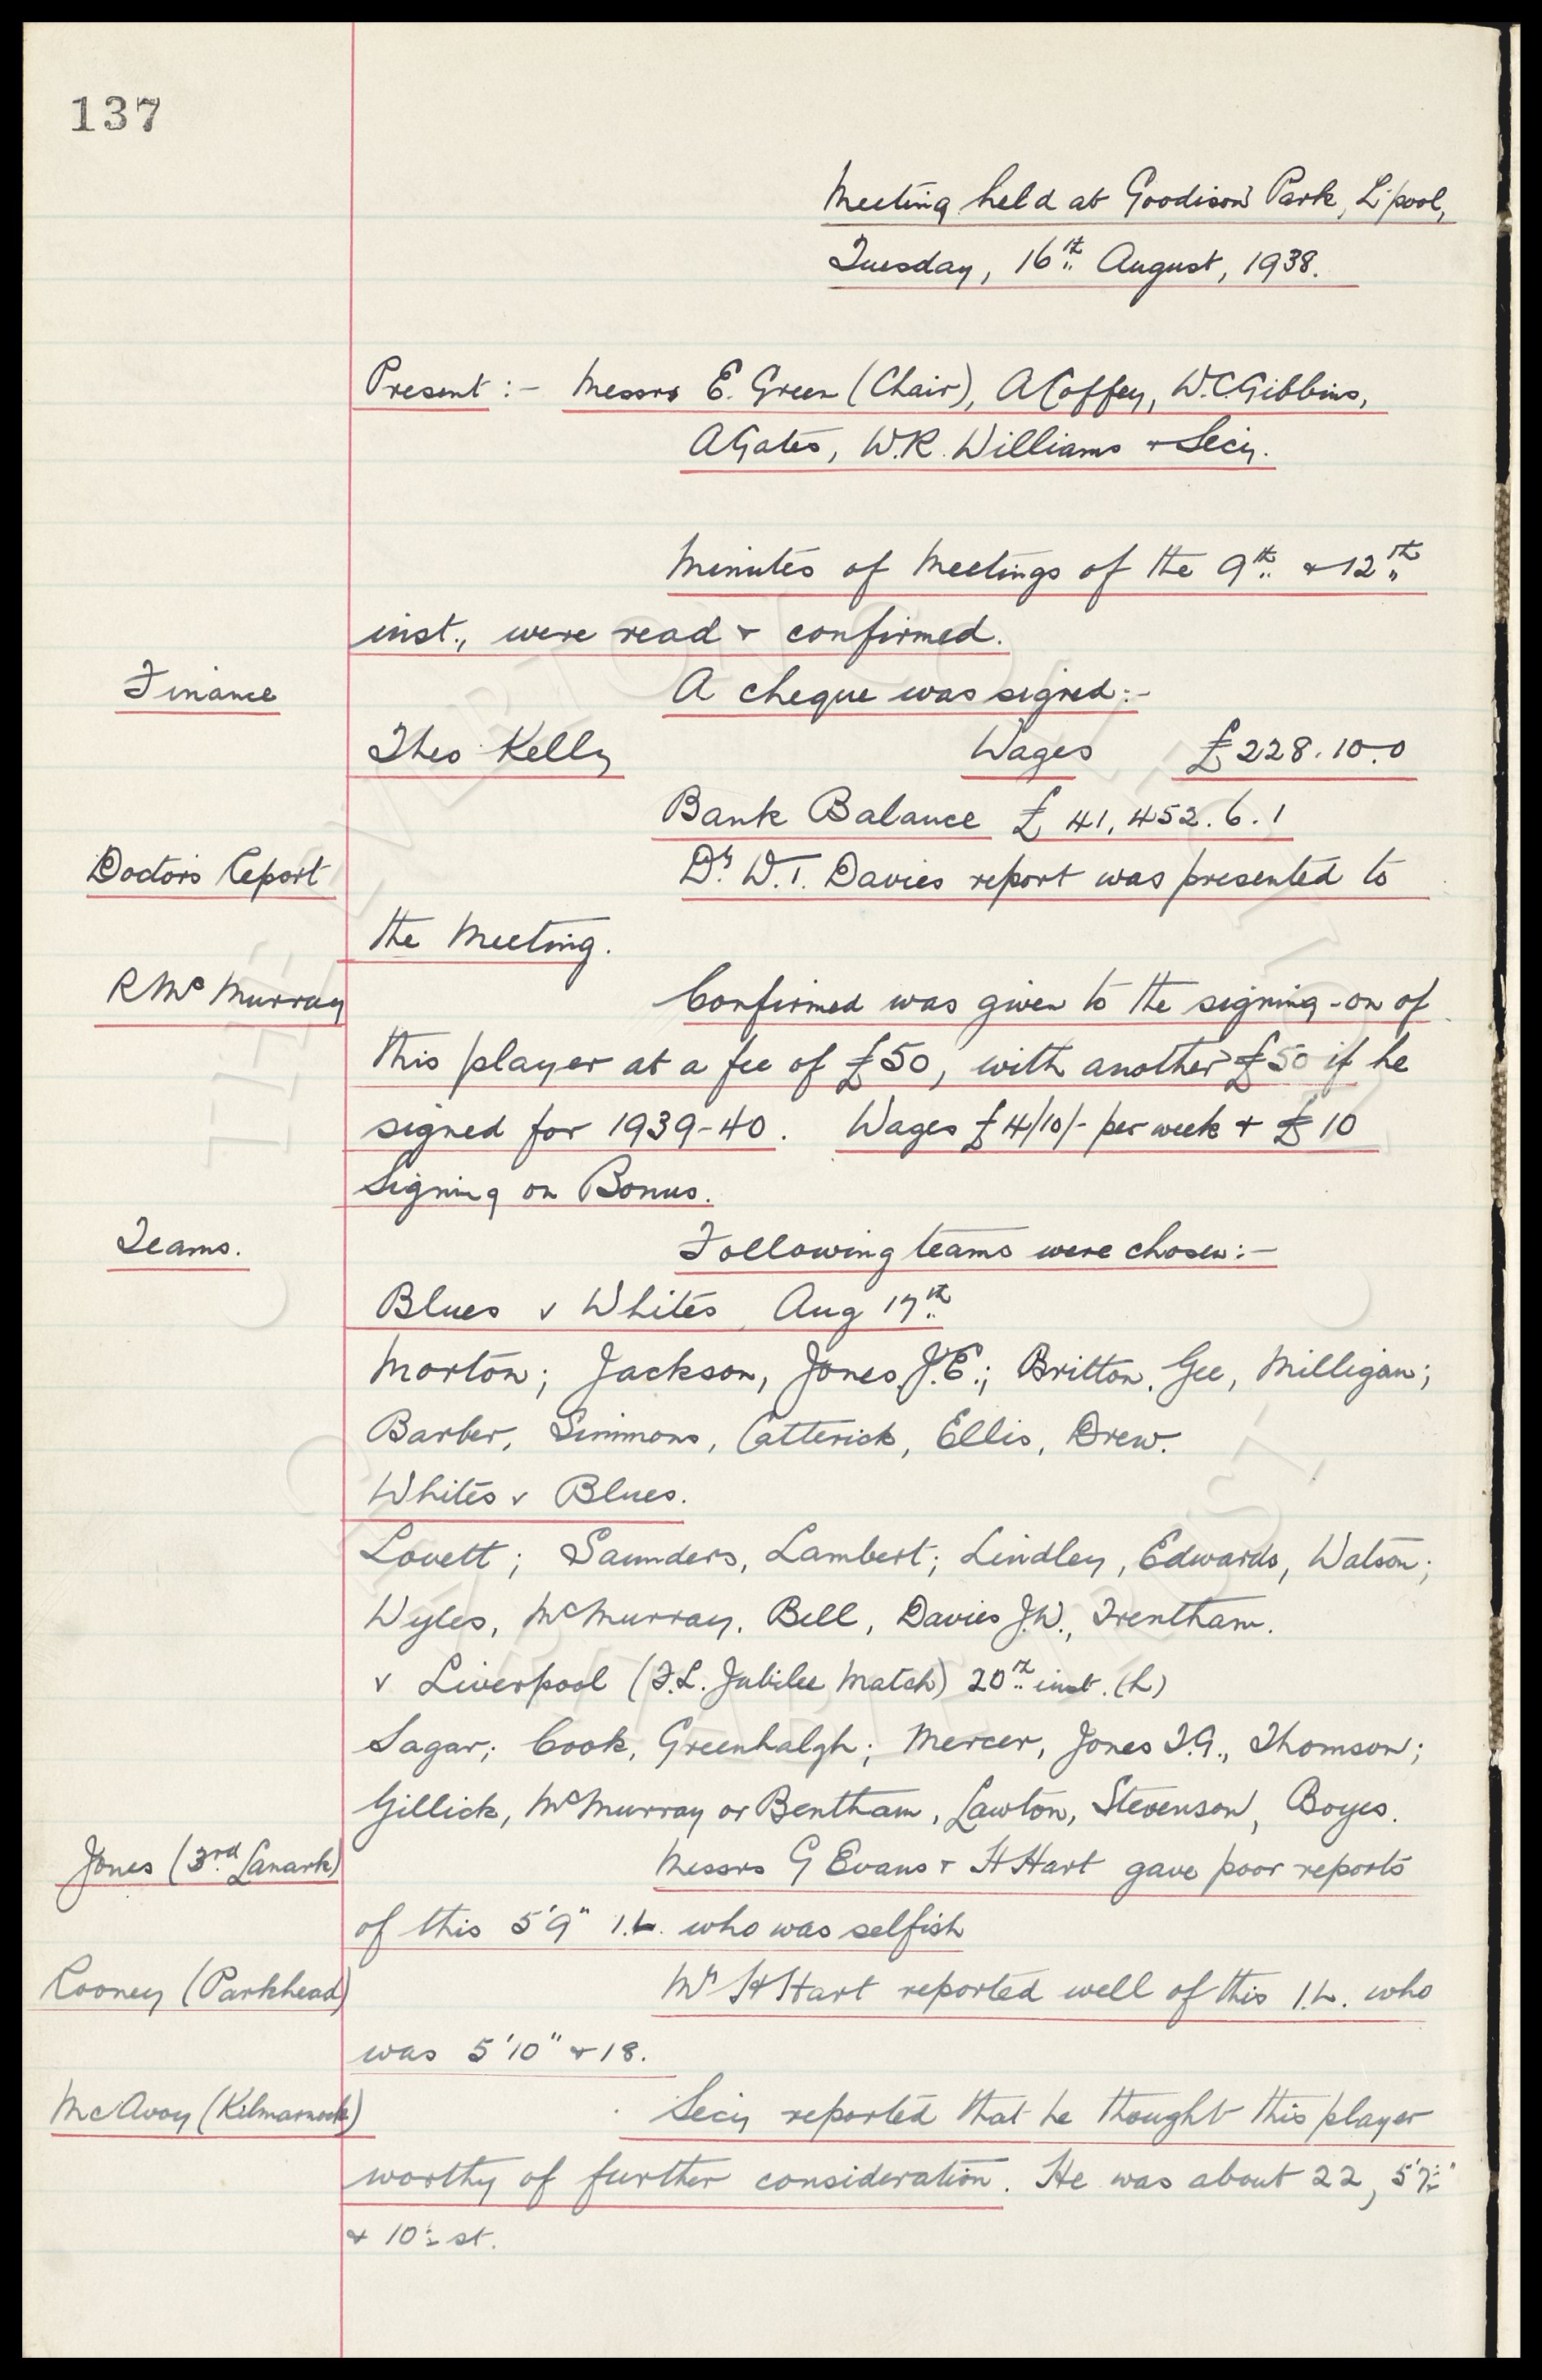 137
Meeting held at Goodison Park, L'pool,
Tuesday, 16th August, 1938.
Present :- Messrs E. Green (Chair), A Coffey, W.C. Gibbins,
A Gates, W.R. Williams & Secy.
Minutes of Meetings of the 9th & 12th
inst., were read & confirmed.
Finance A cheque was signed:-
Theo Kelly Wages £228.10.0
Bank Balance £41,452.6.1
Doctors Report Dr W.T. Davies report was presented to
the Meeting.
R Mc Murray Confirmed was given to the signing-on of
this player at a fee of £50, with another £50 if he
signed for 1939-40. Wages £4/10/- per week & £10
Signing on Bonus.
Teams. Following teams were chosen:-
Blues v Whites Aug 17th
Morton; Jackson, Jones J.E.; Britton, Gee, Milligan;
Barber, Simmons, Catterick, Ellis, Drew.
Whites v Blues.
Lovett; Saunders, Lambert; Lindley, Edwards, Watson;
Wyles, McMurray, Bell, Davies J.W., Trentham.
v Liverpool (F.L. Jubilee Match) 20th inst. (h)
Sagar; Cook, Greenhalgh; Mercer, Jones T.G., Thomson;
Gillick, McMurray or Bentham, Lawton, Stevenson, Boyes.
Jones (3rd Lanark) Messrs G Evans & H Hart gave poor reports
of this 5'9" I.L. who was selfish
Rooney (Parkhead) Mr H Hart reported well of this I.L. who
was 5'10" & 18.
McAvoy (Kilmarnock) Secy reported that he thought this player
worthy of further consideration. He was about 22, 5'7½"
& 10½ st.